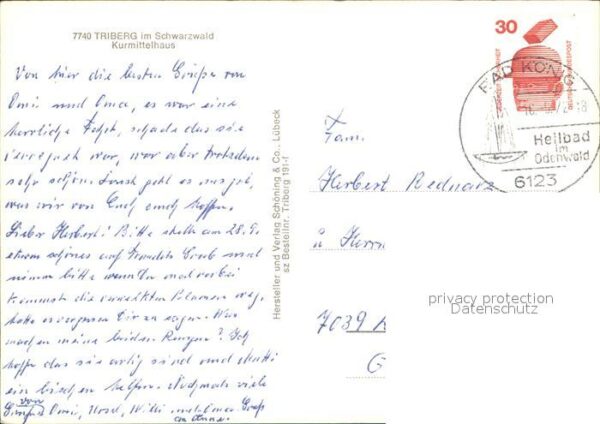 7740 TRIBERG im Schwarzwald
Kurmittelhaus
Von hier die besten Grüße von
Omi und Oma, es war eine
herrliche Fahrt, schade das sie
verregnet war, war aber trotzdem
sehr schön. Sonst geht es uns gut,
was wir von Euch auch hoffen.
Lieber Herbert! Bitte stelle am 28.9.
etwas schönes auf Grab und
nimm bitte wenn Du mal vorbei
kommst die Blumen weg.
hatte vergessen Dir zu sagen. Was
machen meine beiden Ich
hoffe das sie artig sind und
ein bischen helfen. Nochmals viele
Grüße von Omi, Willi und Oma
an Anne.
Hersteller und Verlag Schöning & Co., Lübeck
sz Bestellnr. Triberg 191-f
30
DEUTSCHE BUNDESPOST
BAD KÖNIG
Heilbad
im
Odenwald
6123
Fam.
Herbert Rednarz
u Herrn
7039
G
privacy protection
Datenschutz